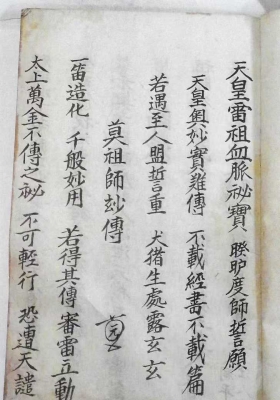 天皇雷祖血脈祕寶 睽胪度師誓願
天皇奥妙實難傳 不載經書不載篇
若遇至人盟誓重 犬猪生處露玄玄
莫祖師玅傳
一畨造化 千般妙用 若得其傳 審雷立動
太上萬金不傳之祕 不可輕行 恐遭天譴